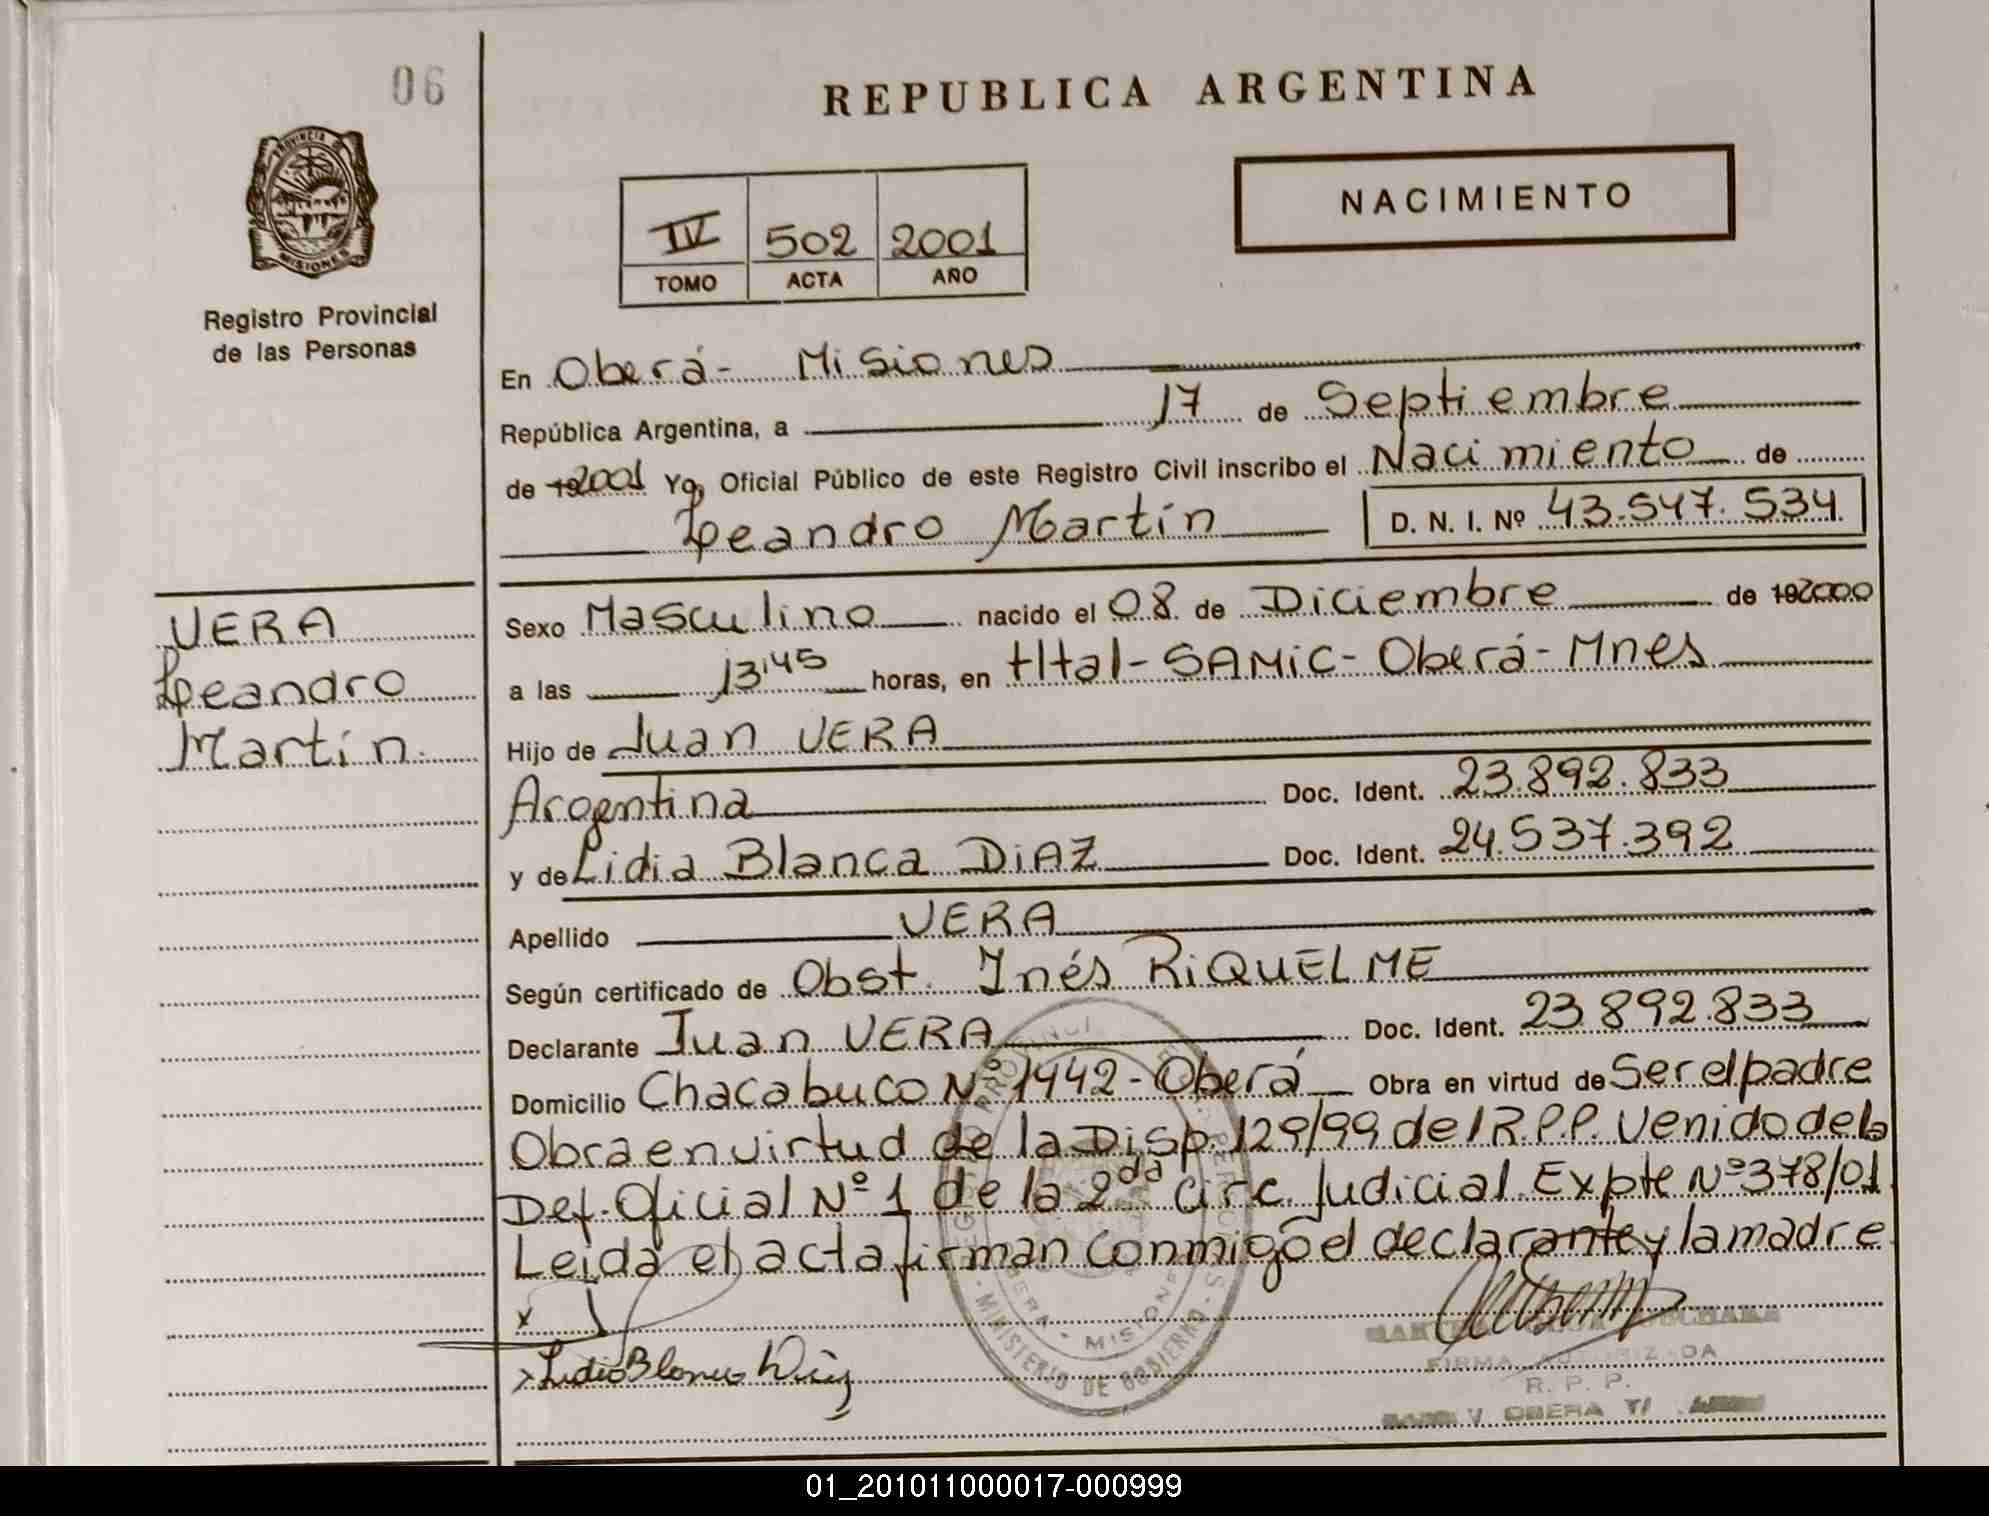 06
REPUBLICA ARGENTINA
NACIMIENTO
PROVINCIA DE
MISIONES
Registro Provincial
de las Personas
IV 502 2001
TOMO ACTA AÑO
En Oberá- Misiones
República Argentina, a 17 de Septiembre
de 192001 Yo, Oficial Público de este Registro Civil inscribo el Nacimiento de
Leandro Martín D. N. I. Nº 43.547.534
VERA
Leandro
Martín.
Sexo Masculino nacido el 08 de Diciembre de 192000
a las 13'45 horas, en Htal-SAMIC-Oberá-Mnes
Hijo de Juan VERA
Argentina Doc. Ident. 23.892.833
y de Lidia Blanca DIAZ Doc. Ident. 24.537.392
Apellido VERA
Según certificado de Obst. Inés RIQUELME
Declarante Juan VERA Doc. Ident. 23.892.833
Domicilio Chacabuco Nº 1442-Oberá Obra en virtud de Ser el padre
Obra en virtud de la Disp. 129/99 del R.P.P. Venido de la
Def. Oficial Nº 1 de la 2da Circ. Judicial Expte Nº 378/01
Leida el acta firman conmigo el declarante y la madre
x
x Lidia Blanca Diaz
MINISTERIO DE GOBIERNO
OBERA - MISIONES
FIRMA AUTORIZADA
R. P. P.
OBERA
01_201011000017-000999